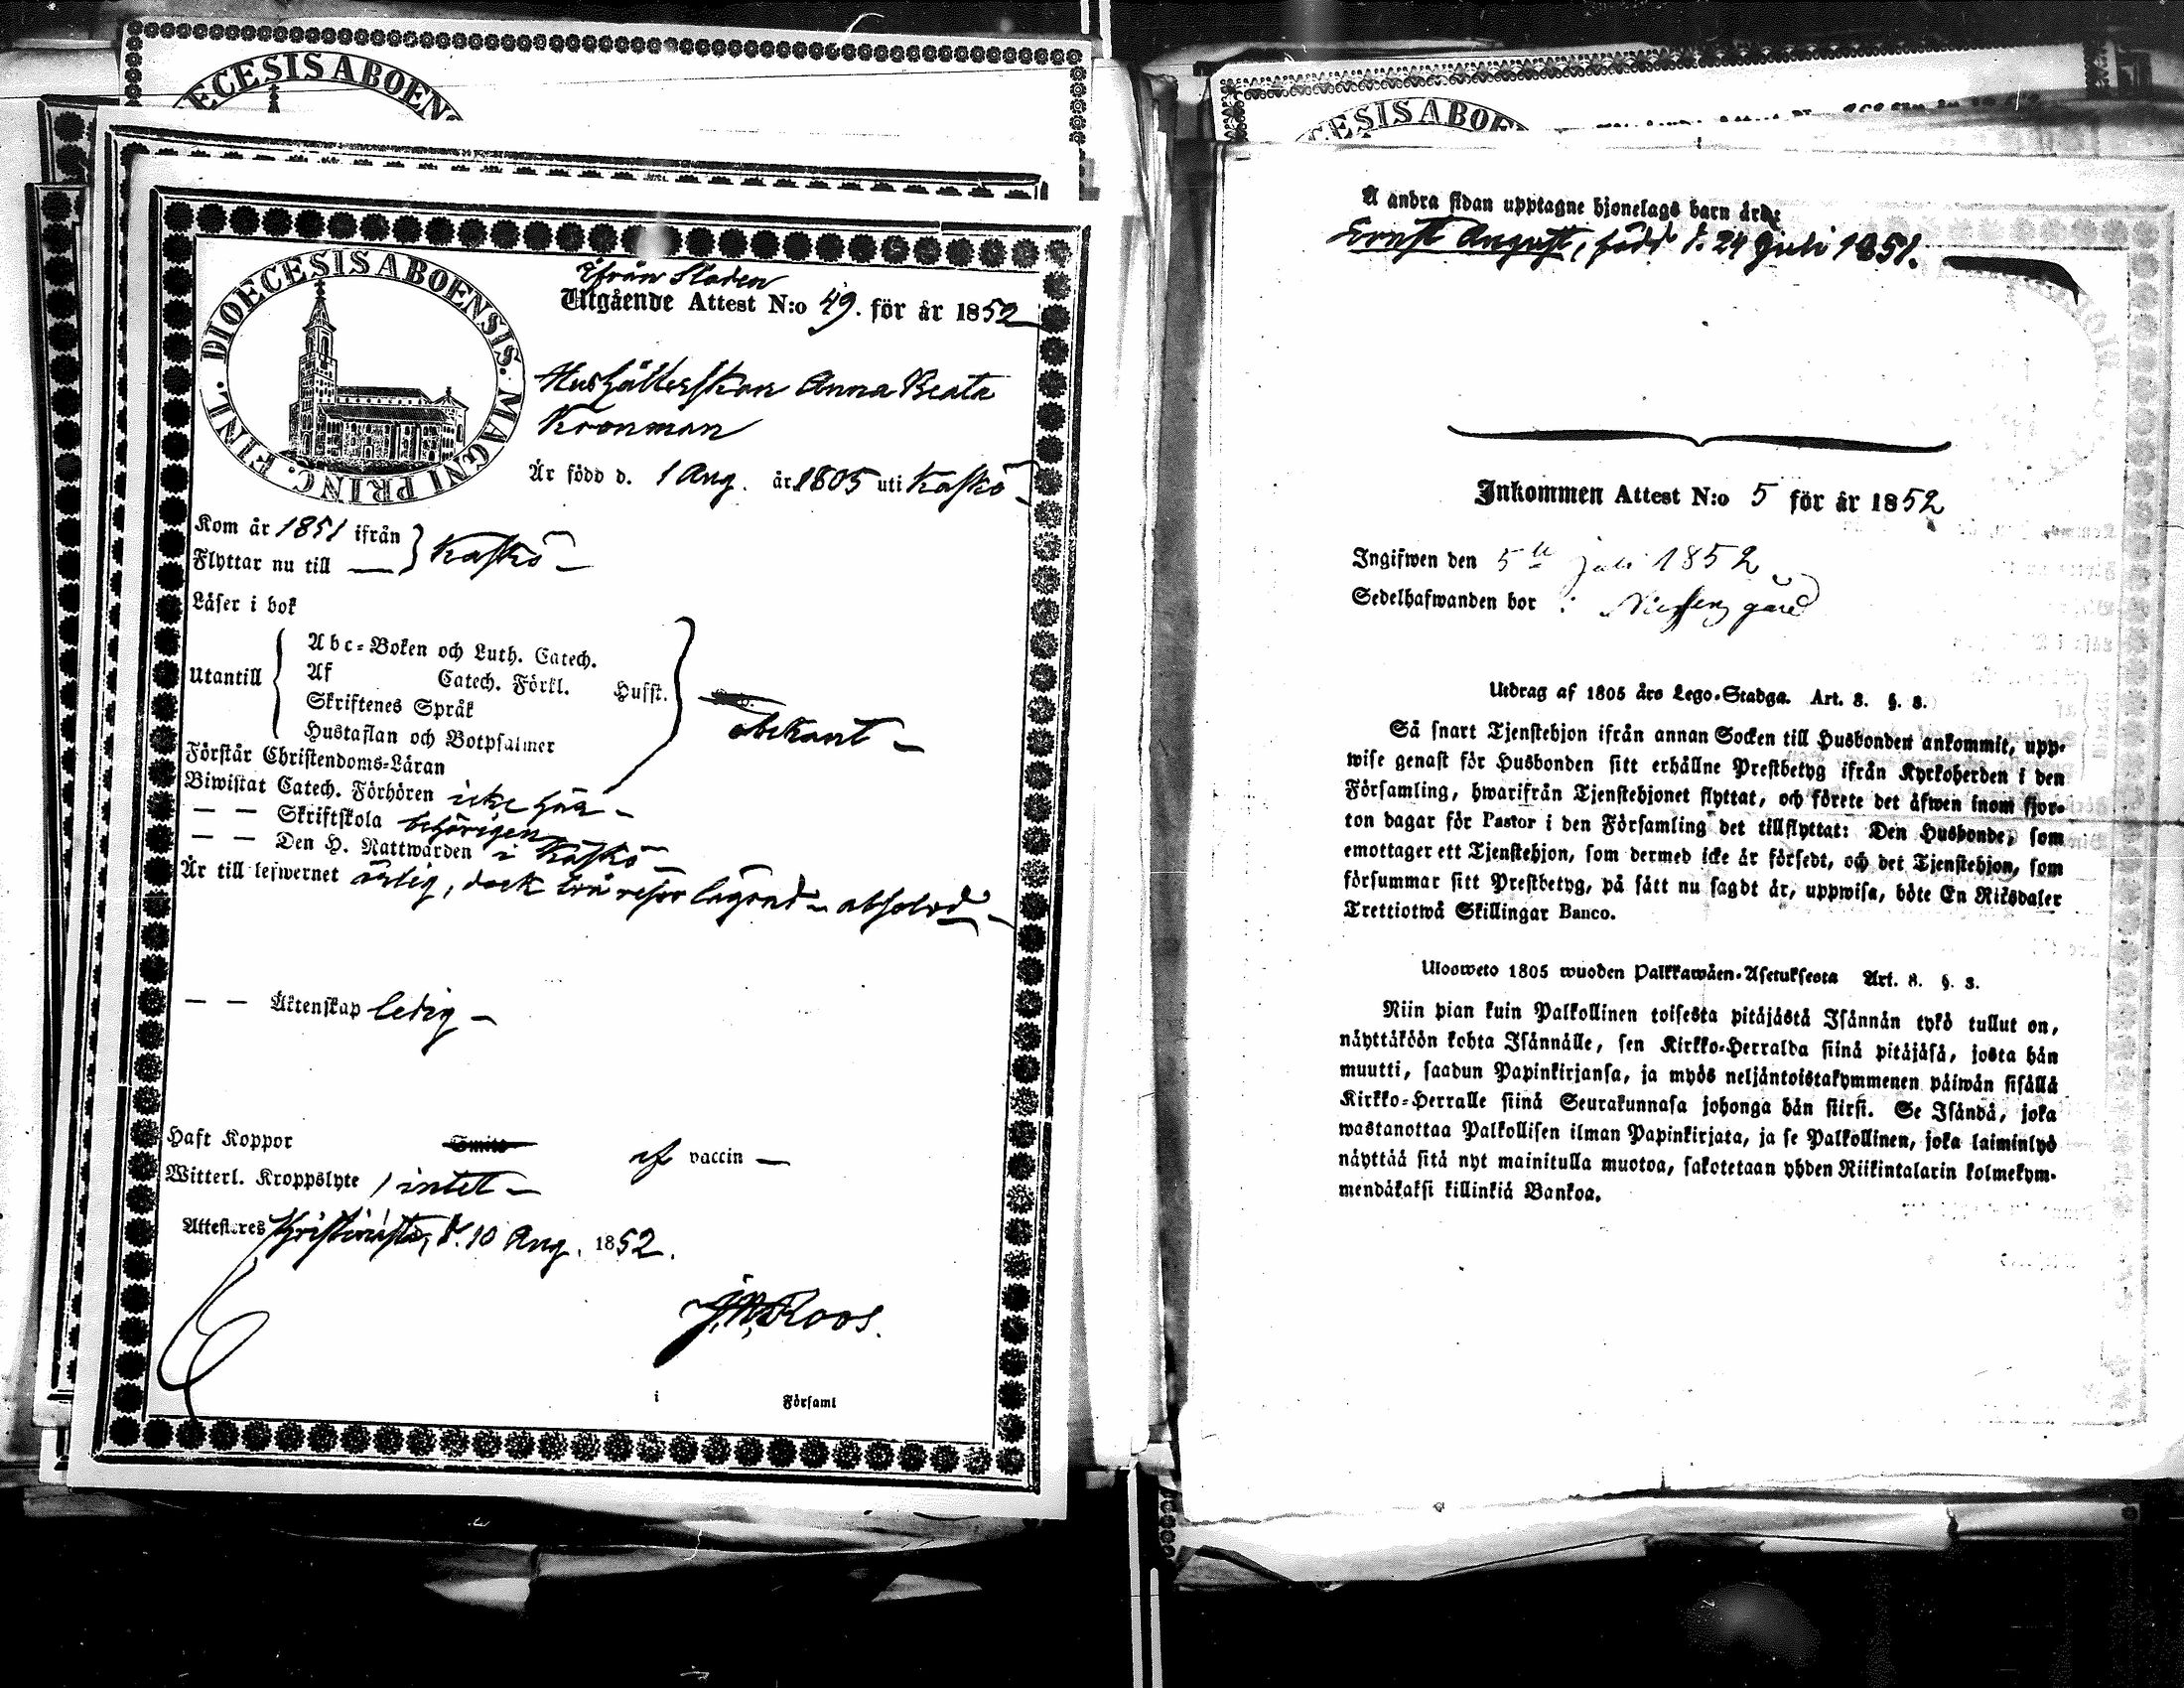 ECESIS ABOEN
DIOECESIS ABOENSIS. MAGNI PRINC. FINL.
ifrån Staden
Utgående Attest N:o 49. för år 1852
Hushållerskan Anna Beata
Kronman
Är född d. 1 Aug. år 1805 uti Kaskö
Kom år 1851 ifrån } Kaskö
Flyttar nu till
Läser i bok
Utantill { Abc-Boken och Luth. Catech.
Af Catech. Förkl. Husst.
Skriftenes Språk
Hustaflan och Botpsalmer
obekant
Förstår Christendoms-Läran
Biwistat Catech. Förhören icke här
— — Skriftskola behörigen
— — Den H. Nattwarden i Kaskö
Är till lefwernet ärlig, dock två resor lägrad absolved
— — Äktenskap ledig
Haft Koppor af vaccin
Witterl. Kroppslyte intet
Attesteres Christinestad, d. 10 Aug. 1852.
Roos.
i Församl
ESIS ABOE
Å andra sidan upptagne hjonelags barn äro:
Ernst August, född d. 24 Juli 1851.
Inkommen Attest N:o 5 för år 1852
Ingifwen den 5 Juli 1852
Sedelhafwanden bor i gård
Utdrag af 1805 års Lego-Stadga. Art. 8. §. 3.
Så snart Tjenstehjon ifrån annan Socken till Husbonden ankommit, upp-
wise genast för Husbonden sitt erhållne Prestbetyg ifrån Kyrkoherden i den
Församling, hwarifrån Tjenstehjonet flyttat, och förete det äfwen inom fjor-
ton dagar för Pastor i den Församling det tillflyttat: Den Husbonde, som
emottager ett Tjenstehjon, som dermed icke är försedt, och det Tjenstehjon, som
försummar sitt Prestbetyg, på sätt nu sagdt är, uppwisa, böte En Riksdaler
Trettiotwå Skillingar Banco.
Ulosweto 1805 wuoden Palkkawäen-Asetuksesta Art. 8. §. 3.
Niin pian kuin Palkollinen toisesta pitäjästä Isännän tykö tullut on,
näyttäköön kohta Isännälle, sen Kirkko-Herralda siinä pitäjäsä, josta hän
muutti, saadun Papinkirjansa, ja myös neljäntoistakymmenen päiwän sisällä
Kirkko-Herralle siinä Seurakunnasa johonga hän siirsi. Se Isändä, joka
wastanottaa Palkollisen ilman Papinkirjata, ja se Palkollinen, joka laiminlyö
näyttää sitä nyt mainitulla muotoa, sakotetaan yhden Riikintalarin kolmekym-
mendäkaksi killinkiä Bankoa.